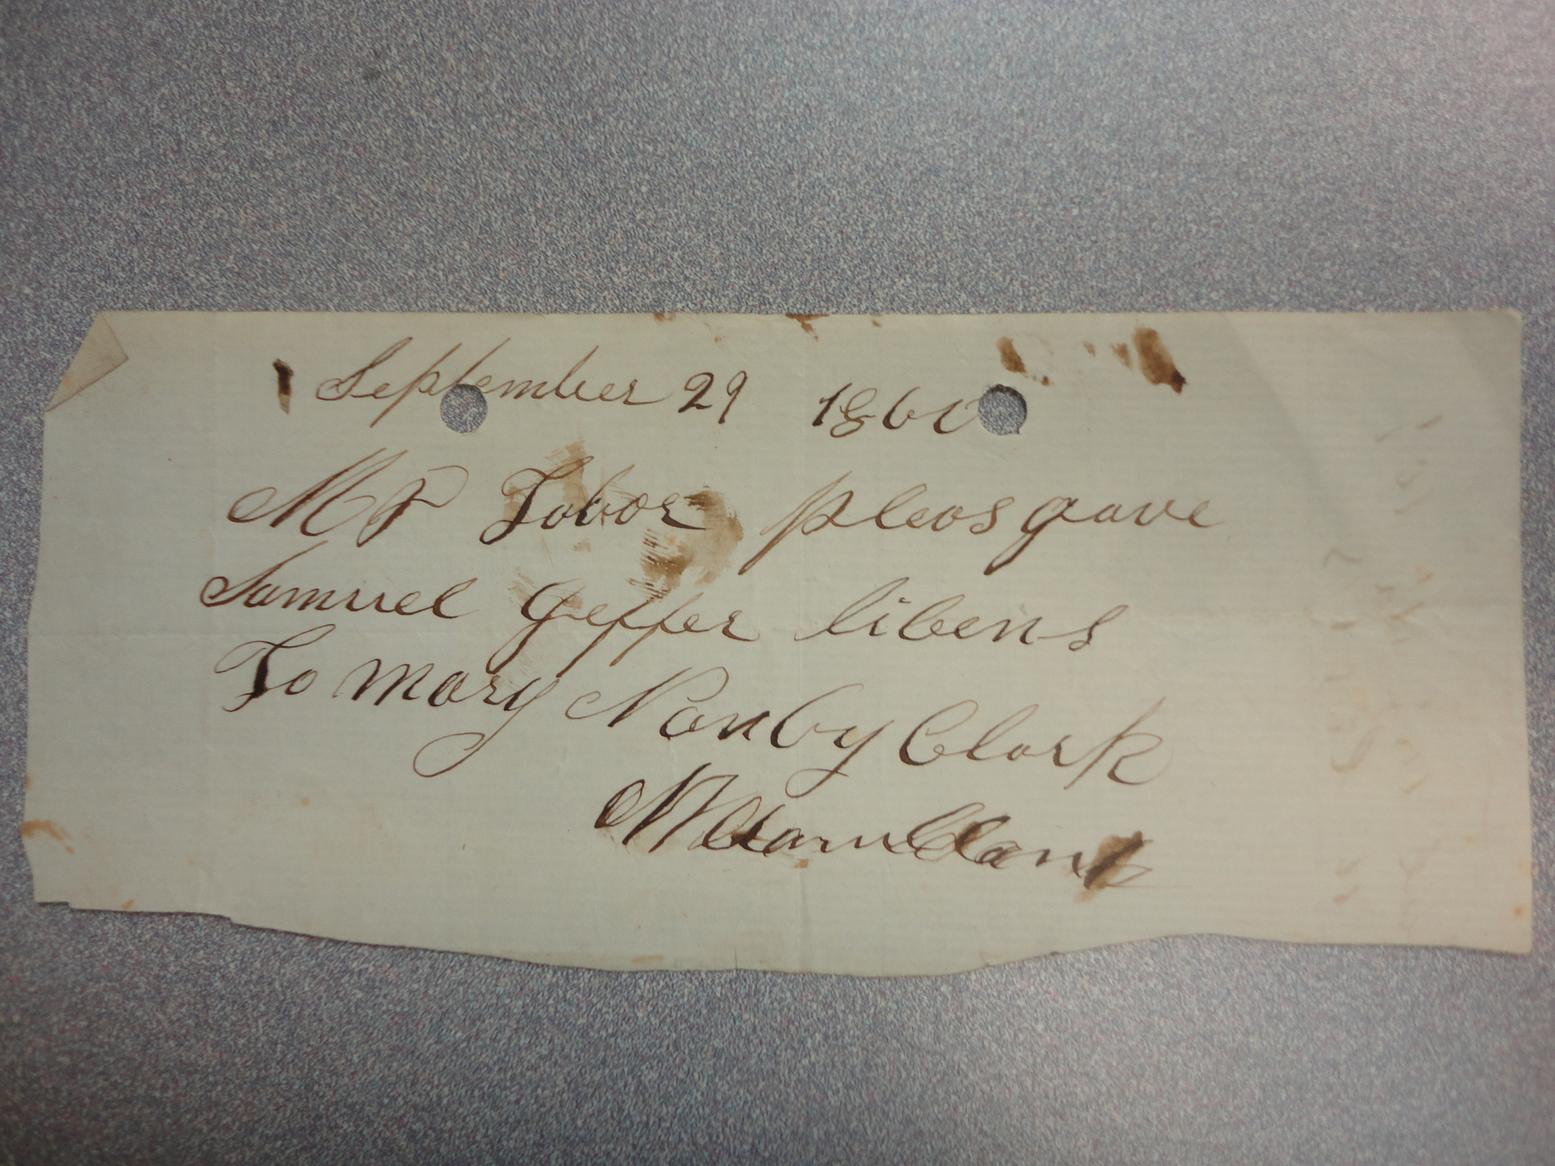 September 29 1860
Mr Tobor pleas gave
Samuel Geffer libens
To Mary Nanby Clark